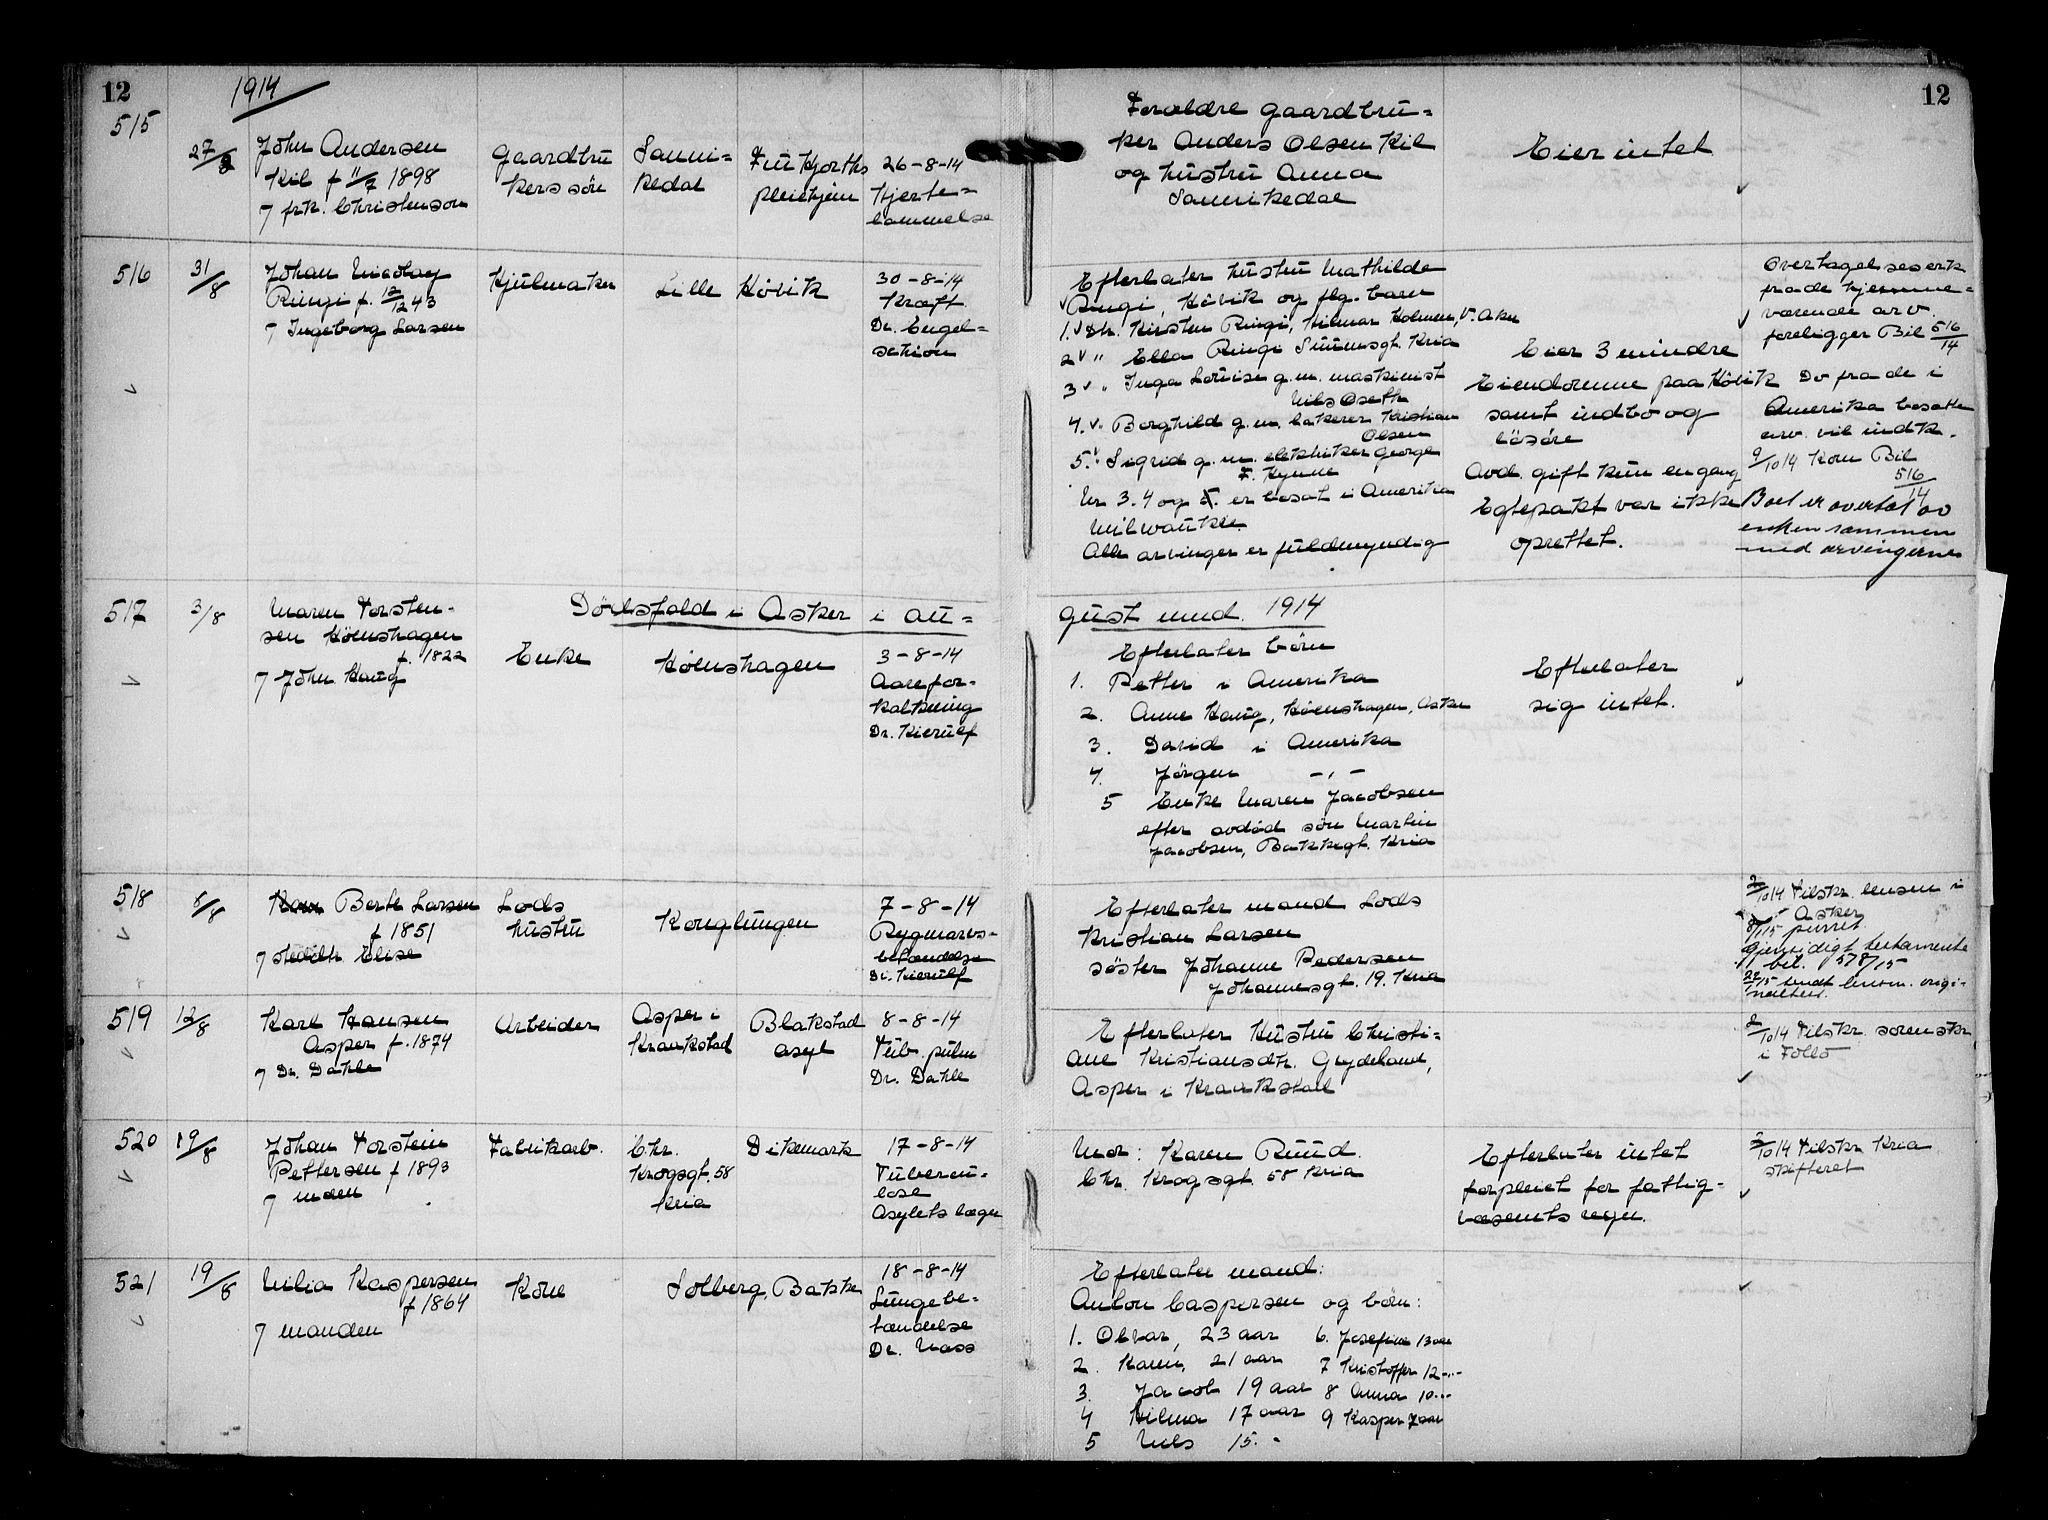 12
1914
12
515
27/8
John Andersen
Kil f 11/7 1898
7 frk. Christenson
Gaardbru
kerssön
Sanni-
kedal
Fru Hjorths
pleiehjem
26-8-14
Hjerte-
lammelse
Foreldre gaardbru-
ker Anders Olsen Kil
og hustru Anna
Sannikedal
Eier intet
516
31/8
Johan Nicolay
Ringi f. 12/12 43
7 Ingeborg Larsen
Hjulmaker
Lille Hövik
30-8-14
Kræft
Dr. Engel-
schiön
Efterlater hustru Mathilde
Ringi, Hövik og flg. barn
1. Dtr. Kirsten Ringi, Hilmar Holmen, V. Aker
2 " Ella Ringi Kria
3 " Inga Lovise g.m. maskinist
Nils Oseth
4. " Borghild g.m. bakerer Kristian
Olsen
5. " Sigrid g.m. elektriker George
F. Kynne
Nr 3. 4 og 5. er bosat i Amerika
Milwaukee
Alle arvinger er fuldmyndig
Eier 3 mindre
Eiendomme paa Hövik
samt indbo og
lösöre
Avd. gift kun engang
Egtepakt var ikke
oprettet.
Overtagelseserk
fra de hjemme-
værende arv.
foreligger Bil 516/14
Do fra de i
Amerika bosatte
arv. vil indk.
9/10 14 Kom Bil
516/14
Boet er overtat av
enken sammen
med arvingerne
517
3/8
Maren Torsten-
sen Höenshagen
f. 1822
7 John Haug
Dödsfald i Asker i au-
gust mnd. 1914
Enke
Höenshagen
3-8-14
Aarefor-
kalkning
Dr. Kierulf
Efterlater börn
1. Petter i Amerika
2. Anne Haug, Höenshagen, Asker
3. David i Amerika
4. Jörgen -"-
5 Enke Maren Jacobsen
efter avdöd sön Martin
Jacobsen, Bakkegt. Kria
Efterlater
sig intet.
518
8/8
Berte Larsen
f 1851
7 Elise
Lods
hustru
Konglungen
7-8-14
Rygmarvs-
betændelse
Dr. Kierulf
Efterlater mand Lods
Kristian Larsen
söster Johanne Pedersen
Johannesgt. 19. Kria
2/10 14 Tilskr. lensm i
Asker
8/1 15 purret.
Gjensidigt testamente
bil. 578/15
sendt lensm. origi-
nalten.
519
12/8
Karl Hansen
Asper f. 1874
7 Dr. Dahle
Arbeider
Asper i
Kraakstad
Blakstad
asyl
8-8-14
Tub. pulm
Dr. Dahle
Efterlater Hustru Christi-
ane Kristiansdtr. Grydeland,
Asper i Kraakstad
2/10 14 Tilskr. sorenskr
i Follo
520
19/8
Johan Torstein
Pettersen f 1893
7 moren
Fabrikarb.
Chr.
Krogsgt. 58
Kria
Dikemark
17-8-14
Tubercu-
lose
Asylets læge
Mor: Karen Ruud.
Chr. Krogsgt. 58 Kria
Efterlater intet
forpleiet for fattig-
væsenets regn.
2/10 14 Tilskr Kria
skifteret
521
19/8
Nilia Kaspersen
f 1864
7 manden
Kone
Solberg, Bakke
18-8-14
Lungebe-
tændelse
Dr. Nass
Efterlater mand:
Anton Caspersen og börn:
1. Olvar, 23 aar
6. Josefine 13 aar
2. Karen, 21 aar
7 Kristoffer 12 -"-
3. Jacob 19 aar
8 Anna 10 -"-
4 Hilma 17 aar
9 Kasper 7 aar
5 Nils 15 -"